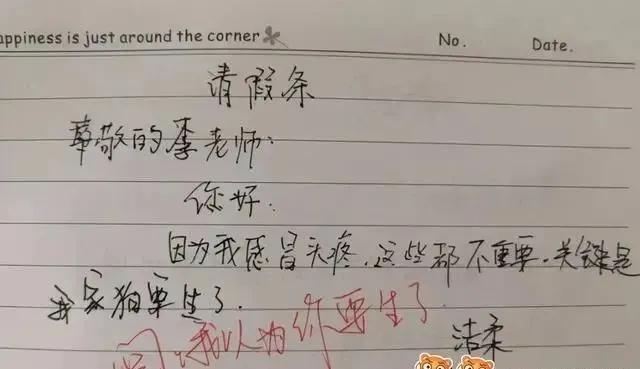 appiness is just around the corner No. Date.
请假条
尊敬的李老师:
您好:
因为我感冒头疼,这些都不重要.关键是
我家狗要生了.
我以为你要生了
洁柔